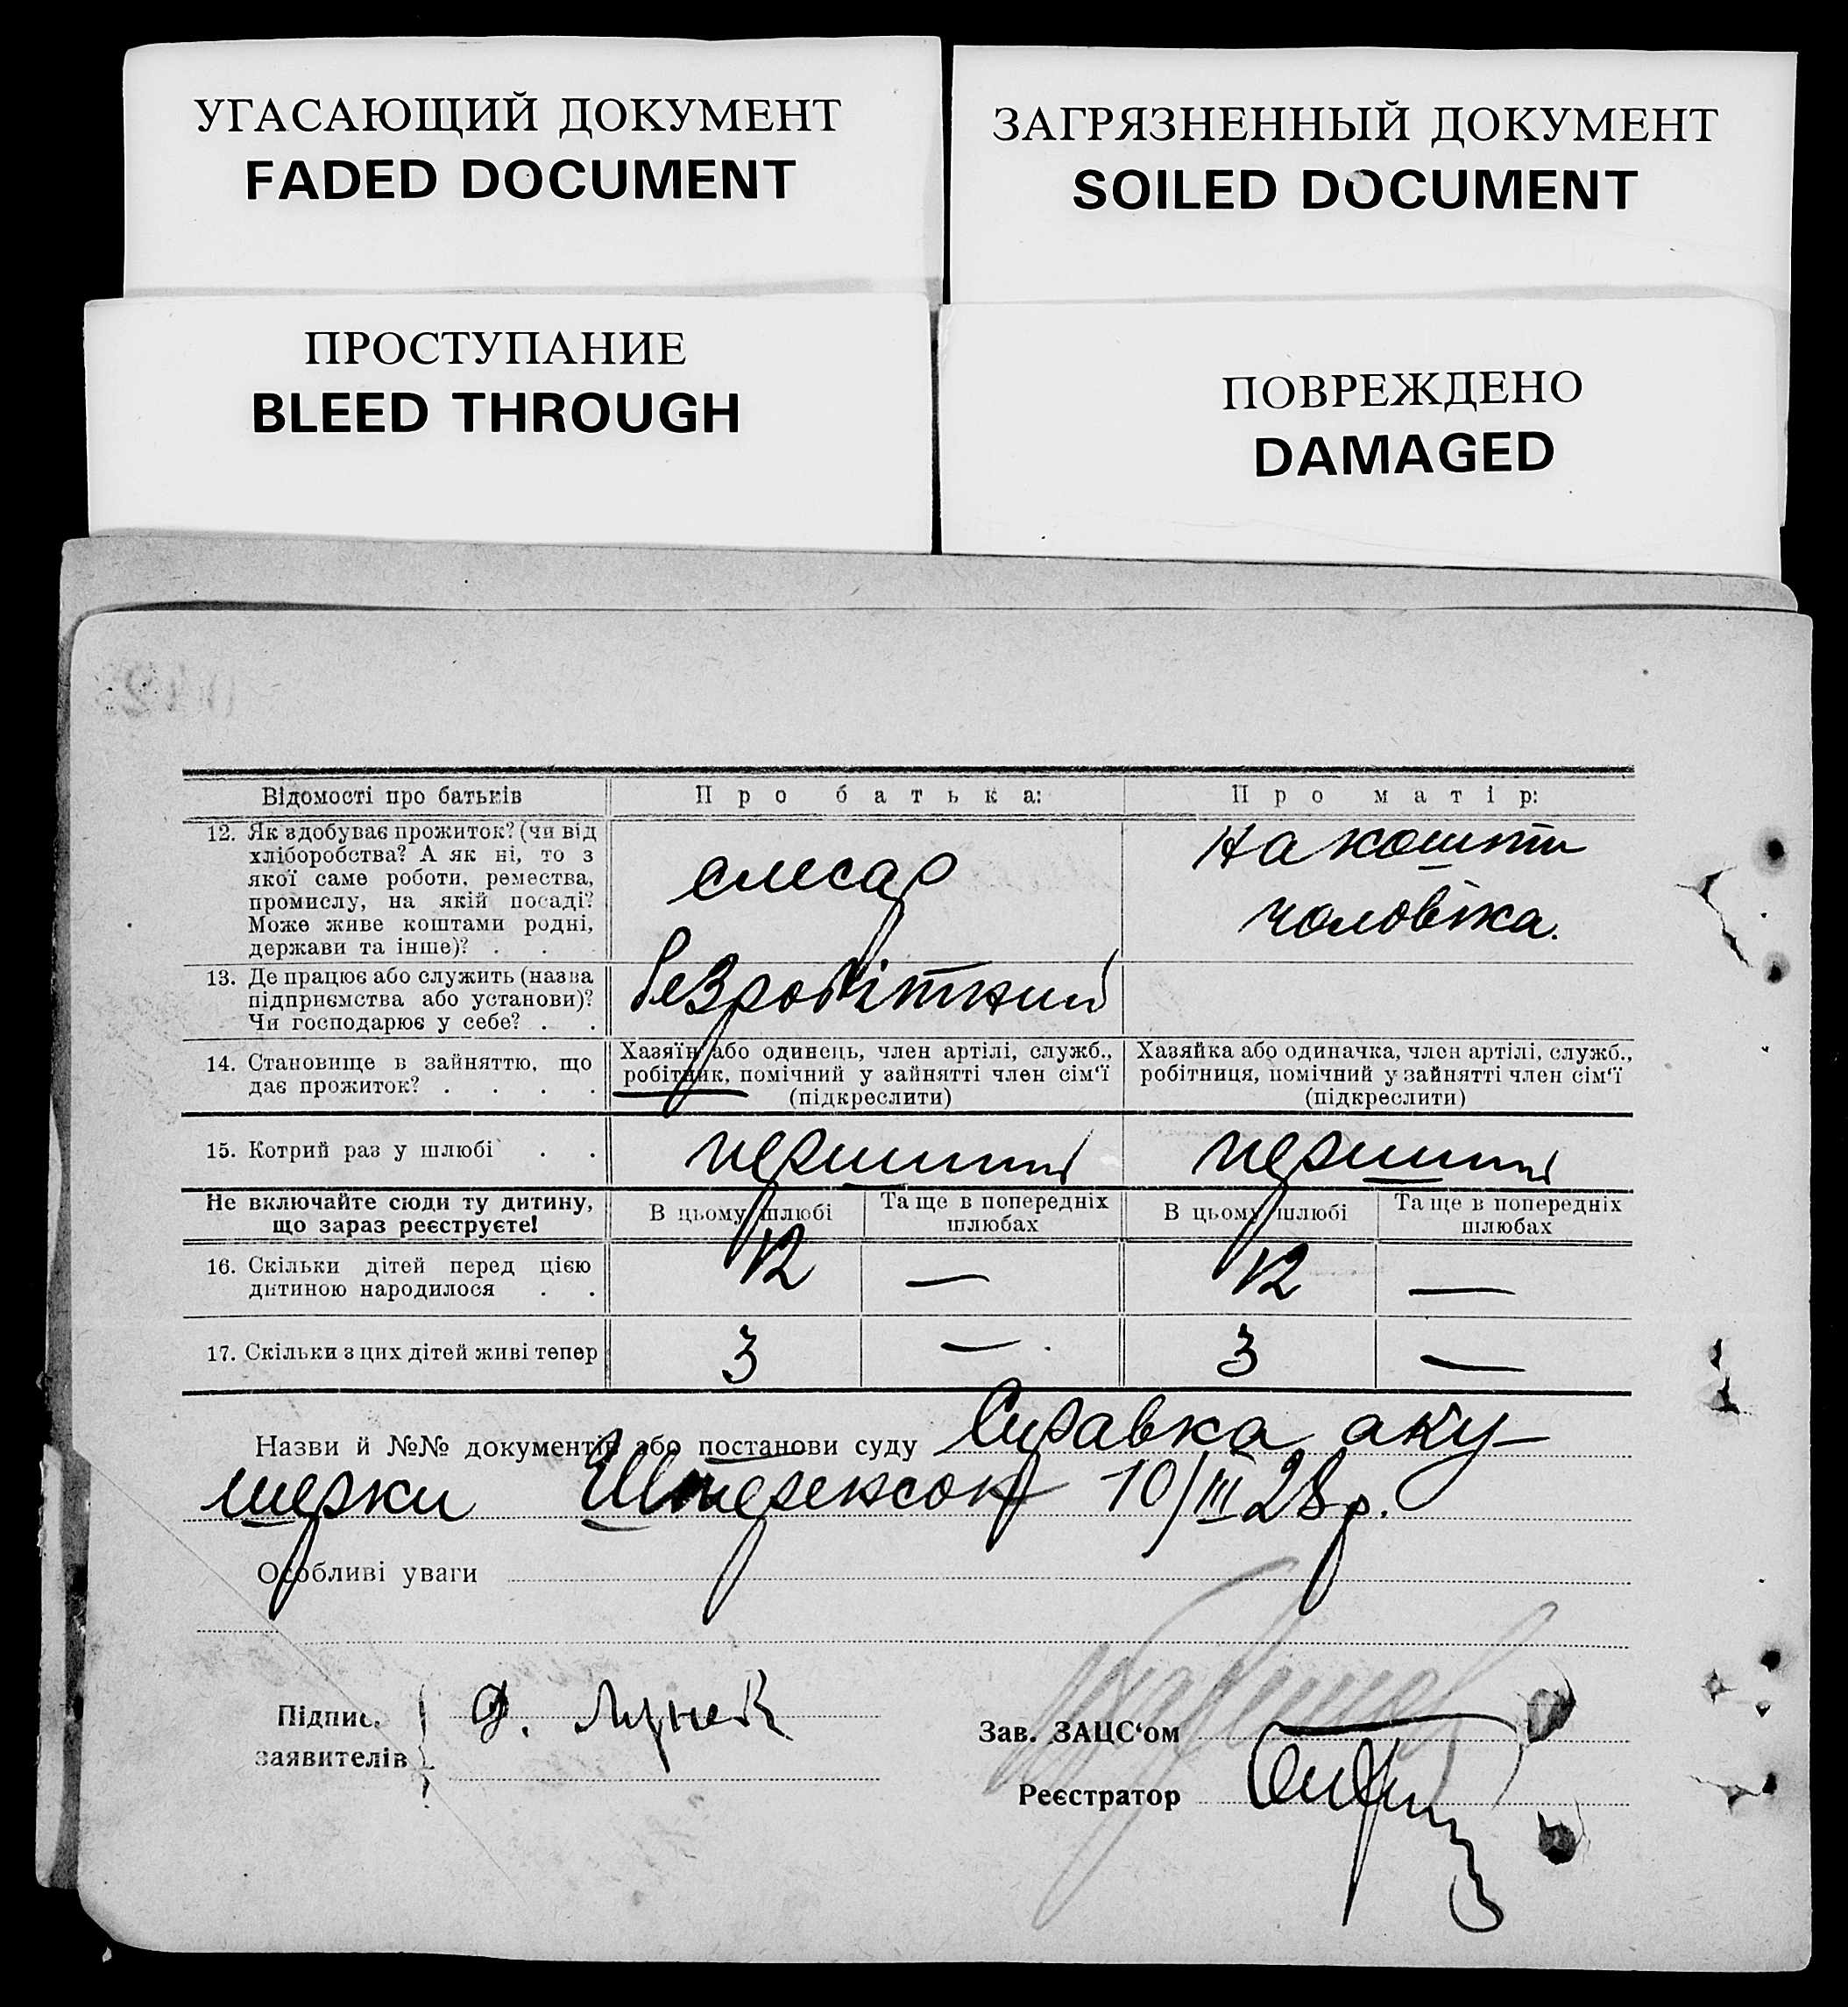 УГАСАЮЩИЙ ДОКУМЕНТ
FADED DOCUMENT
ЗАГРЯЗНЕННЫЙ ДОКУМЕНТ
SOILED DOCUMENT
ПРОСТУПАНИЕ
BLEED THROUGH
ПОВРЕЖДЕНО
DAMAGED
Відомості про батьків
Про батька:
Про матір:
12. Як здобуває прожиток? (чи від
хліборобства? А як ні, то з
якої саме роботи, ремества,
промислу, на якій посаді?
Може живе коштами родні,
держави та інше)? . . .
слесар
на кошти
чоловіка.
13. Де працює або служить (назва
підприємства або установи)?
Чи господарює у себе? . .
безробітний
14. Становище в зайняттю, що
дає прожиток? . . . .
Хазяїн або одинець, член артілі, служб.,
робітник, помічний у зайнятті член сім'ї
(підкреслити)
Хазяйка або одиначка, член артілі, служб.,
робітниця, помічний у зайнятті член сім'ї
(підкреслити)
15. Котрий раз у шлюбі . .
перший
перший
Не включайте сюди ту дитину,
що зараз реєструєте!
В цьому шлюбі
Та ще в попередніх
шлюбах
В цьому шлюбі
Та ще в попередніх
шлюбах
16. Скільки дітей перед цією
дитиною народилося . .
12 — 12 —
17. Скільки з цих дітей живі тепер
3 — 3 —
Назви й №№ документів або постанови суду Справка аку-
шерки 10/III 28 р.
Особливі уваги
Підпис
заявителів
Зав. ЗАЦС'ом
Реєстратор